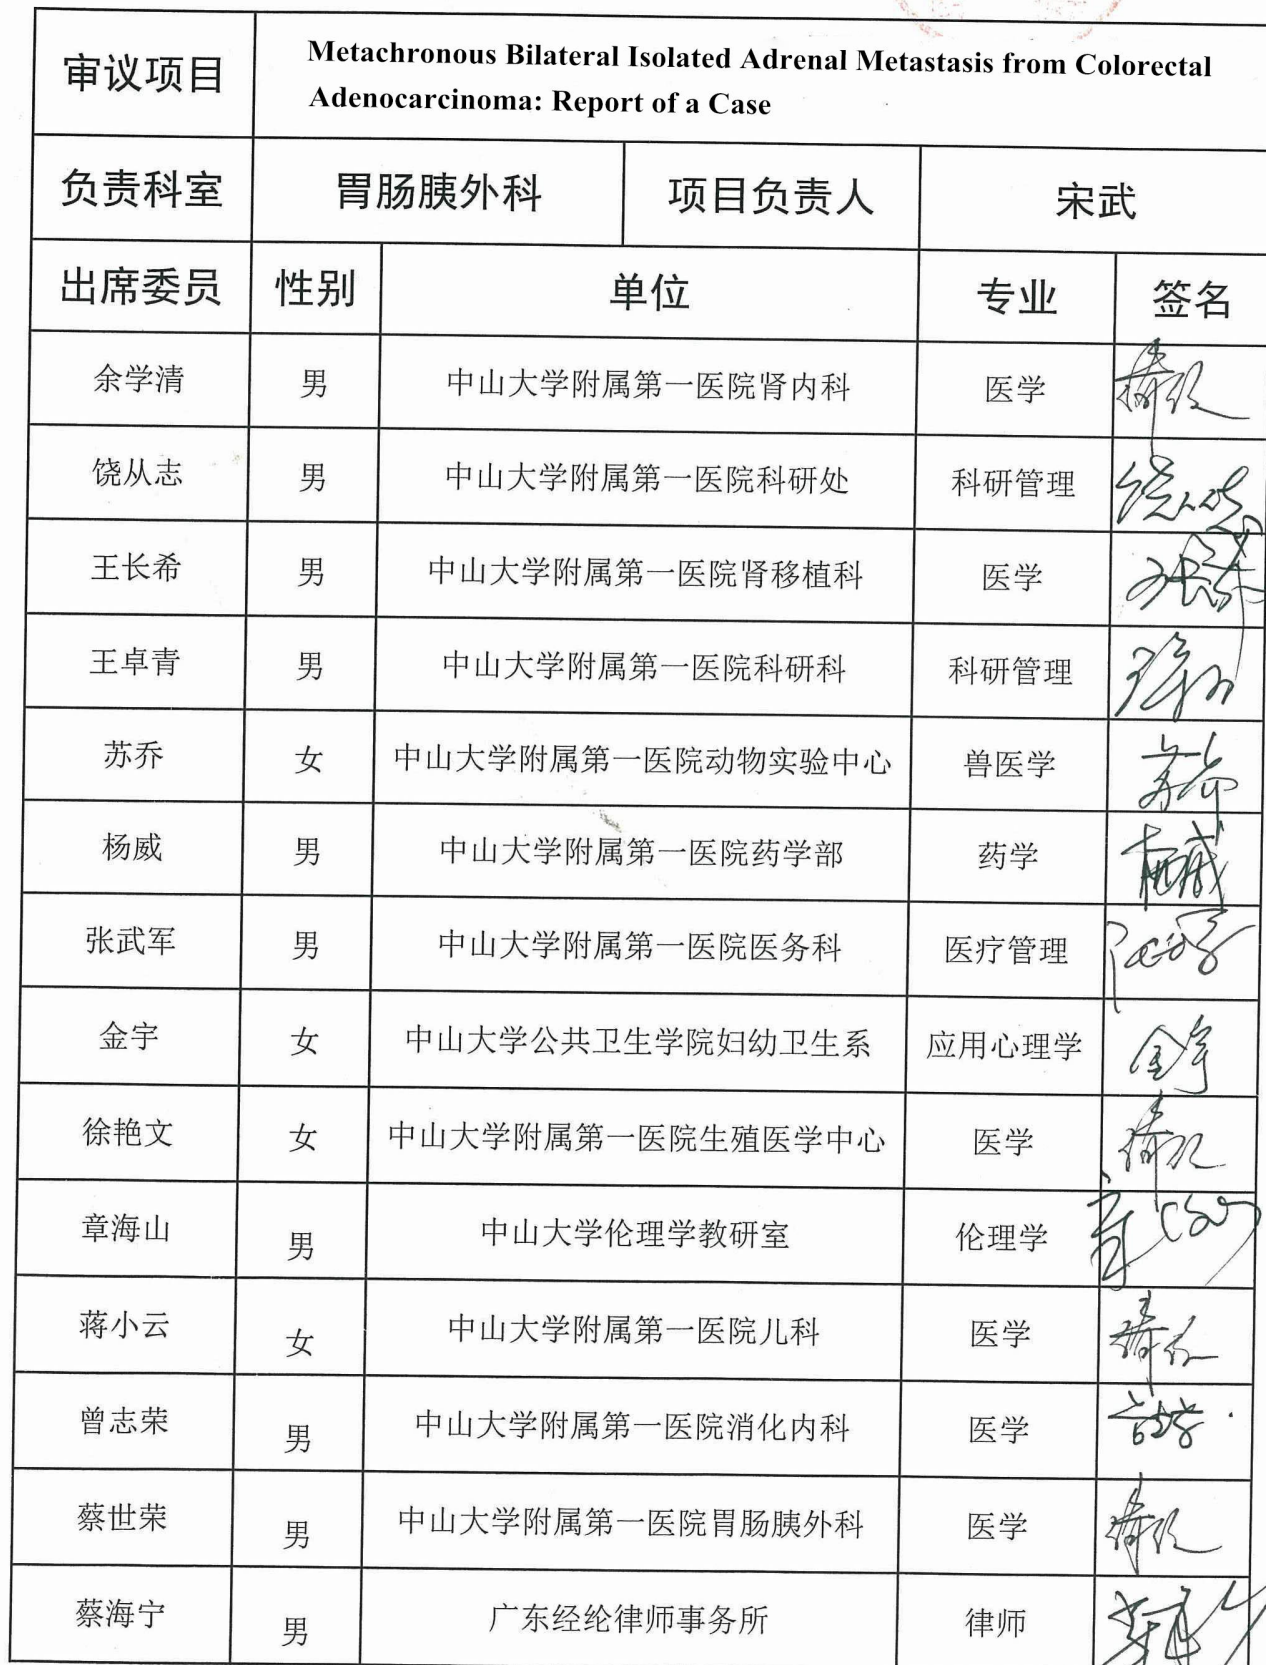 审议项目
Metachronous Bilateral Isolated Adrenal Metastasis from Colorectal
Adenocarcinoma: Report of a Case
负责科室 胃肠胰外科 项目负责人 宋武
出席委员 性别 单位 专业 签名
余学清 男 中山大学附属第一医院肾内科 医学
饶从志 男 中山大学附属第一医院科研处 科研管理 饶从志
王长希 男 中山大学附属第一医院肾移植科 医学 王长希
王卓青 男 中山大学附属第一医院科研科 科研管理
苏乔 女 中山大学附属第一医院动物实验中心 兽医学 苏乔
杨威 男 中山大学附属第一医院药学部 药学 杨威
张武军 男 中山大学附属第一医院医务科 医疗管理
金宇 女 中山大学公共卫生学院妇幼卫生系 应用心理学 金宇
徐艳文 女 中山大学附属第一医院生殖医学中心 医学
章海山 男 中山大学伦理学教研室 伦理学
蒋小云 女 中山大学附属第一医院儿科 医学
曾志荣 男 中山大学附属第一医院消化内科 医学 曾志荣
蔡世荣 男 中山大学附属第一医院胃肠胰外科 医学
蔡海宁 男 广东经纶律师事务所 律师